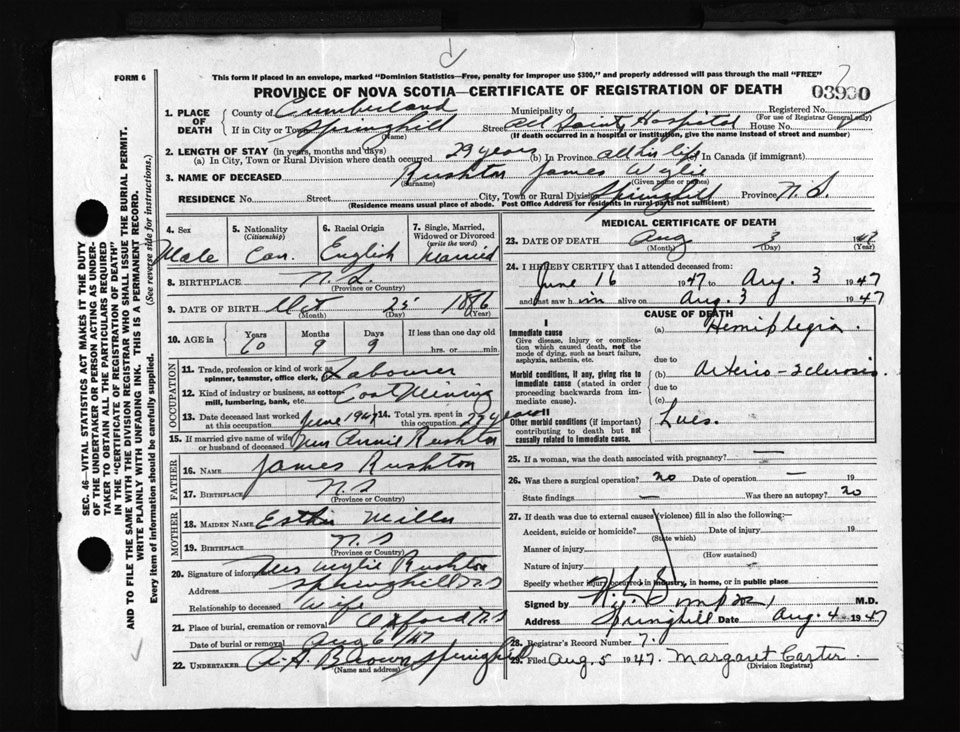 FORM 6
This form if placed in an envelope, marked "Dominion Statistics—Free, penalty for improper use $300," and properly addressed will pass through the mail "FREE"
PROVINCE OF NOVA SCOTIA—CERTIFICATE OF REGISTRATION OF DEATH
03930
1. PLACE OF DEATH
County of Cumberland Municipality of Registered No.
(For use of Registrar General only)
If in City or Town Springhill (Name) Street All Saints Hospital House No. 6
(If death occurred in a hospital or institution, give the name instead of street and number)
2. LENGTH OF STAY (in years, months and days)
(a) In City, Town or Rural Division where death occurred 29 years (b) In Province all his life (c) In Canada (if immigrant)
3. NAME OF DECEASED Rushton James Wylie
(Surname) (Given name or names)
RESIDENCE No. Street City, Town or Rural Division Springhill Province N.S.
(Residence means usual place of abode. Post Office Address for residents in rural parts not sufficient)
4. Sex Male
5. Nationality (Citizenship) Can.
6. Racial Origin English
7. Single, Married, Widowed or Divorced (write the word) Married
8. BIRTHPLACE N.S.
(Province or Country)
9. DATE OF BIRTH Oct 25 1886
(Month) (Day) (Year)
10. AGE in Years 60 Months 9 Days 9 If less than one day old hrs. or min.
OCCUPATION
11. Trade, profession or kind of work as spinner, teamster, office clerk, Labourer
12. Kind of industry or business, as cotton-mill, lumbering, bank, etc. Coal Mining
13. Date deceased last worked at this occupation June 1947 14. Total yrs. spent in this occupation 29 years
15. If married give name of wife or husband of deceased Mrs Annie Rushton
FATHER
16. NAME James Rushton
17. BIRTHPLACE N.S
(Province or Country)
MOTHER
18. MAIDEN NAME Esther Mills
19. BIRTHPLACE N.S
(Province or Country)
20. Signature of informant Mrs Wylie Rushton
Address Springhill N.S
Relationship to deceased Wife
21. Place of burial, cremation or removal Oxford N.S
Date of burial or removal Aug 6/47
22. UNDERTAKER A.A. Brown Springhill
(Name and address)
MEDICAL CERTIFICATE OF DEATH
23. DATE OF DEATH Aug 3 1947
(Month) (Day) (Year)
24. I HEREBY CERTIFY that I attended deceased from:
June 16 1947 to Aug. 3 1947
and last saw him alive on Aug. 3 1947
CAUSE OF DEATH
I
Immediate cause
Give disease, injury or complication which caused death, not the mode of dying, such as heart failure, asphyxia, asthenia, etc.
(a) Hemiplegia.
due to
Morbid conditions, if any, giving rise to immediate cause (stated in order proceeding backwards from immediate cause).
(b) Arterio-sclerosis.
due to
(c)
II
Other morbid conditions (if important) contributing to death but not causally related to immediate cause.
Lues.
25. If a woman, was the death associated with pregnancy? —
26. Was there a surgical operation? no Date of operation — 19
State findings — Was there an autopsy? no
27. If death was due to external causes (violence) fill in also the following:—
Accident, suicide or homicide? Date of injury 19
(State which)
Manner of injury
(How sustained)
Nature of injury
Specify whether injury occurred in industry, in home, or in public place
Signed by M.D.
Address Springhill Date Aug. 4 1947
28. Registrar's Record Number 7.
29. Filed Aug. 5 1947. Margaret Carter.
(Division Registrar)
SEC. 46—VITAL STATISTICS ACT MAKES IT THE DUTY OF THE UNDERTAKER OR PERSON ACTING AS UNDERTAKER TO OBTAIN ALL THE PARTICULARS REQUIRED IN THE "CERTIFICATE OF REGISTRATION OF DEATH" AND TO FILE THE SAME WITH THE DIVISION REGISTRAR WHO SHALL ISSUE THE BURIAL PERMIT.
WRITE PLAINLY WITH UNFADING INK. THIS IS A PERMANENT RECORD.
Every item of information should be carefully supplied. (See reverse side for instructions.)